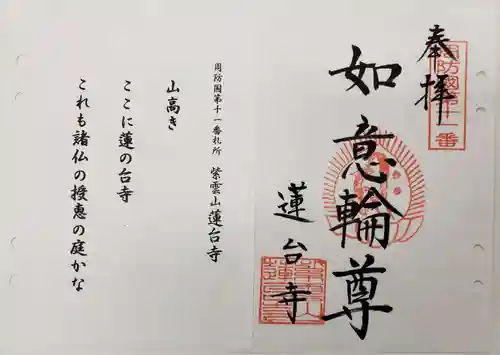 奉拝
周防國第十一番
如意輪尊
蓮台寺
周防国第十一番札所 紫雲山蓮台寺
山高き
ここに蓮の台寺
これも諸仏の授恵の庭かな